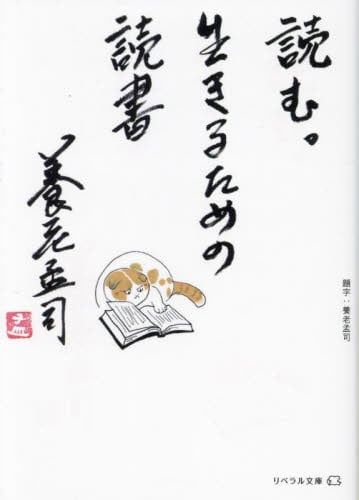 読む。
生きるための
読書
養老孟司
題字：養老孟司
リベラル文庫